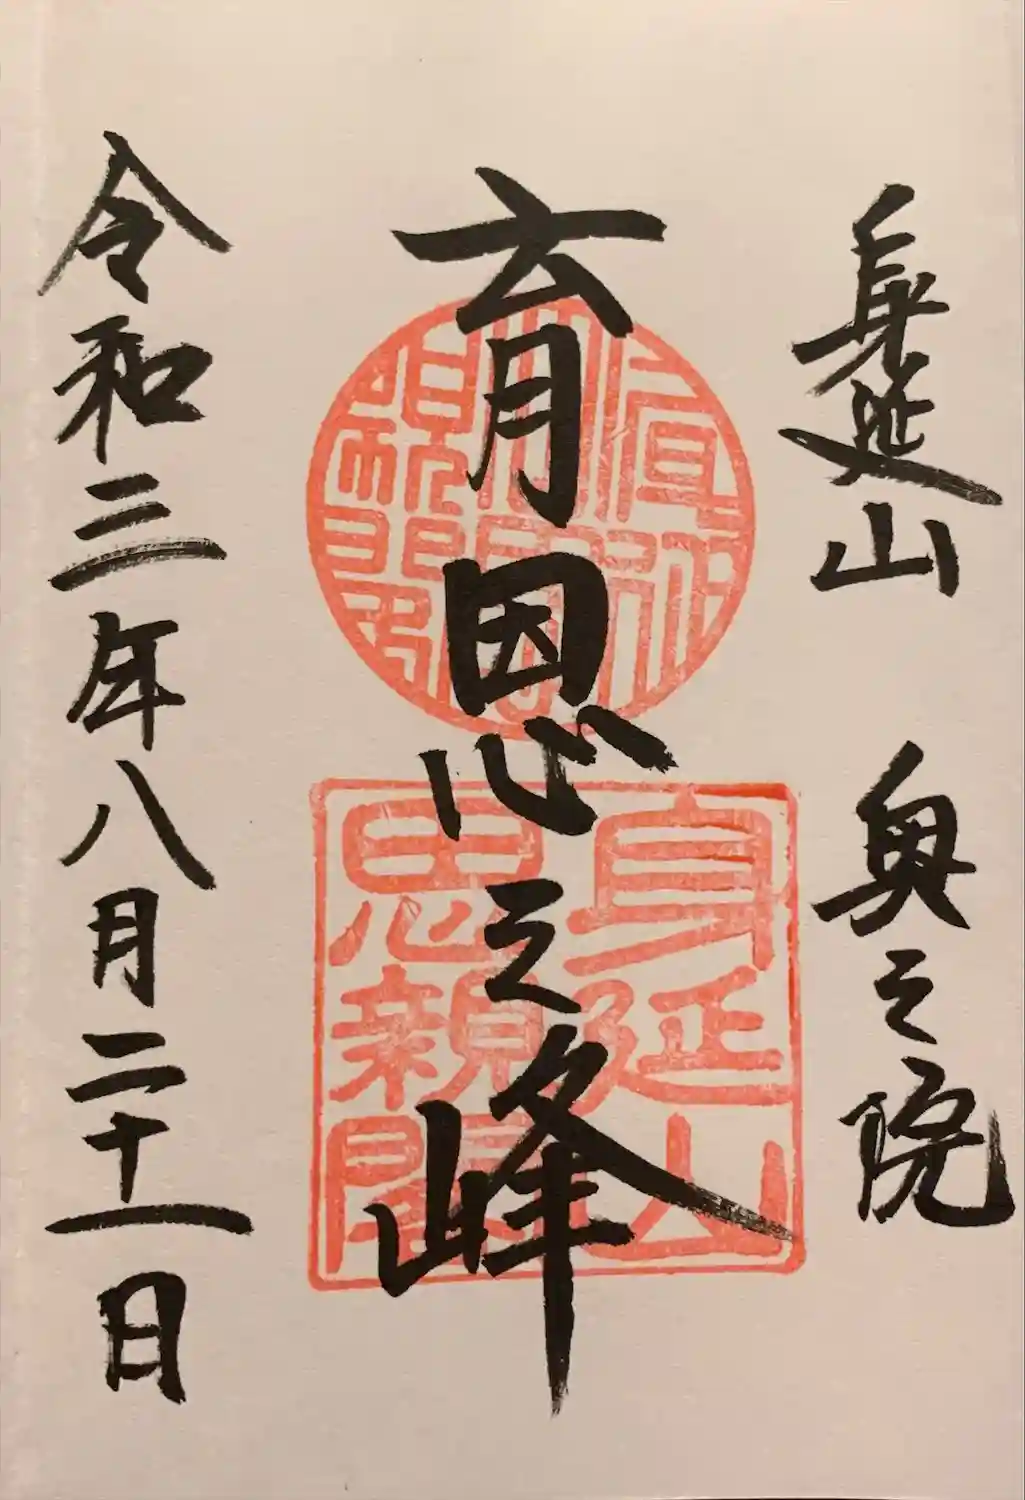 身延山 奥之院
育恩之峰
身延山
思親閣
令和三年八月二十一日